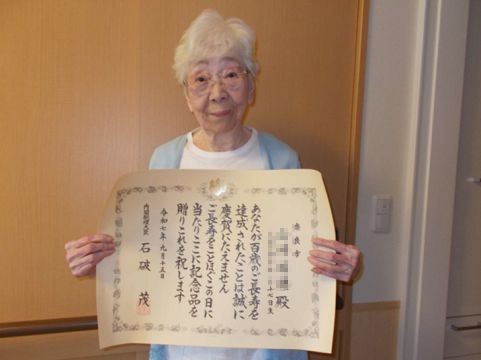 奈良市
殿
十七日生
あなたが百歳のご長寿を
達成されたことは誠に
慶賀にたえません
ご長寿をことほぐこの日に
当たりここに記念品を
贈りこれを祝します
令和七年九月十五日
内閣総理大臣 石破 茂